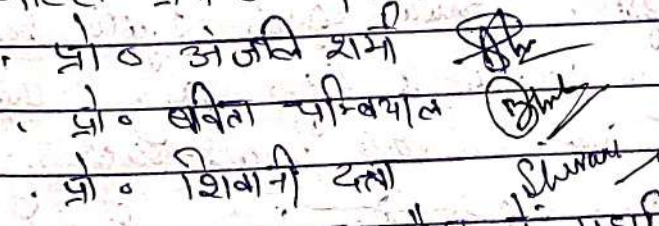 प्रो० अंजलि शर्मा
प्रो० बविता पम्बियाल
प्रो० शिवानी दत्ता Shivani